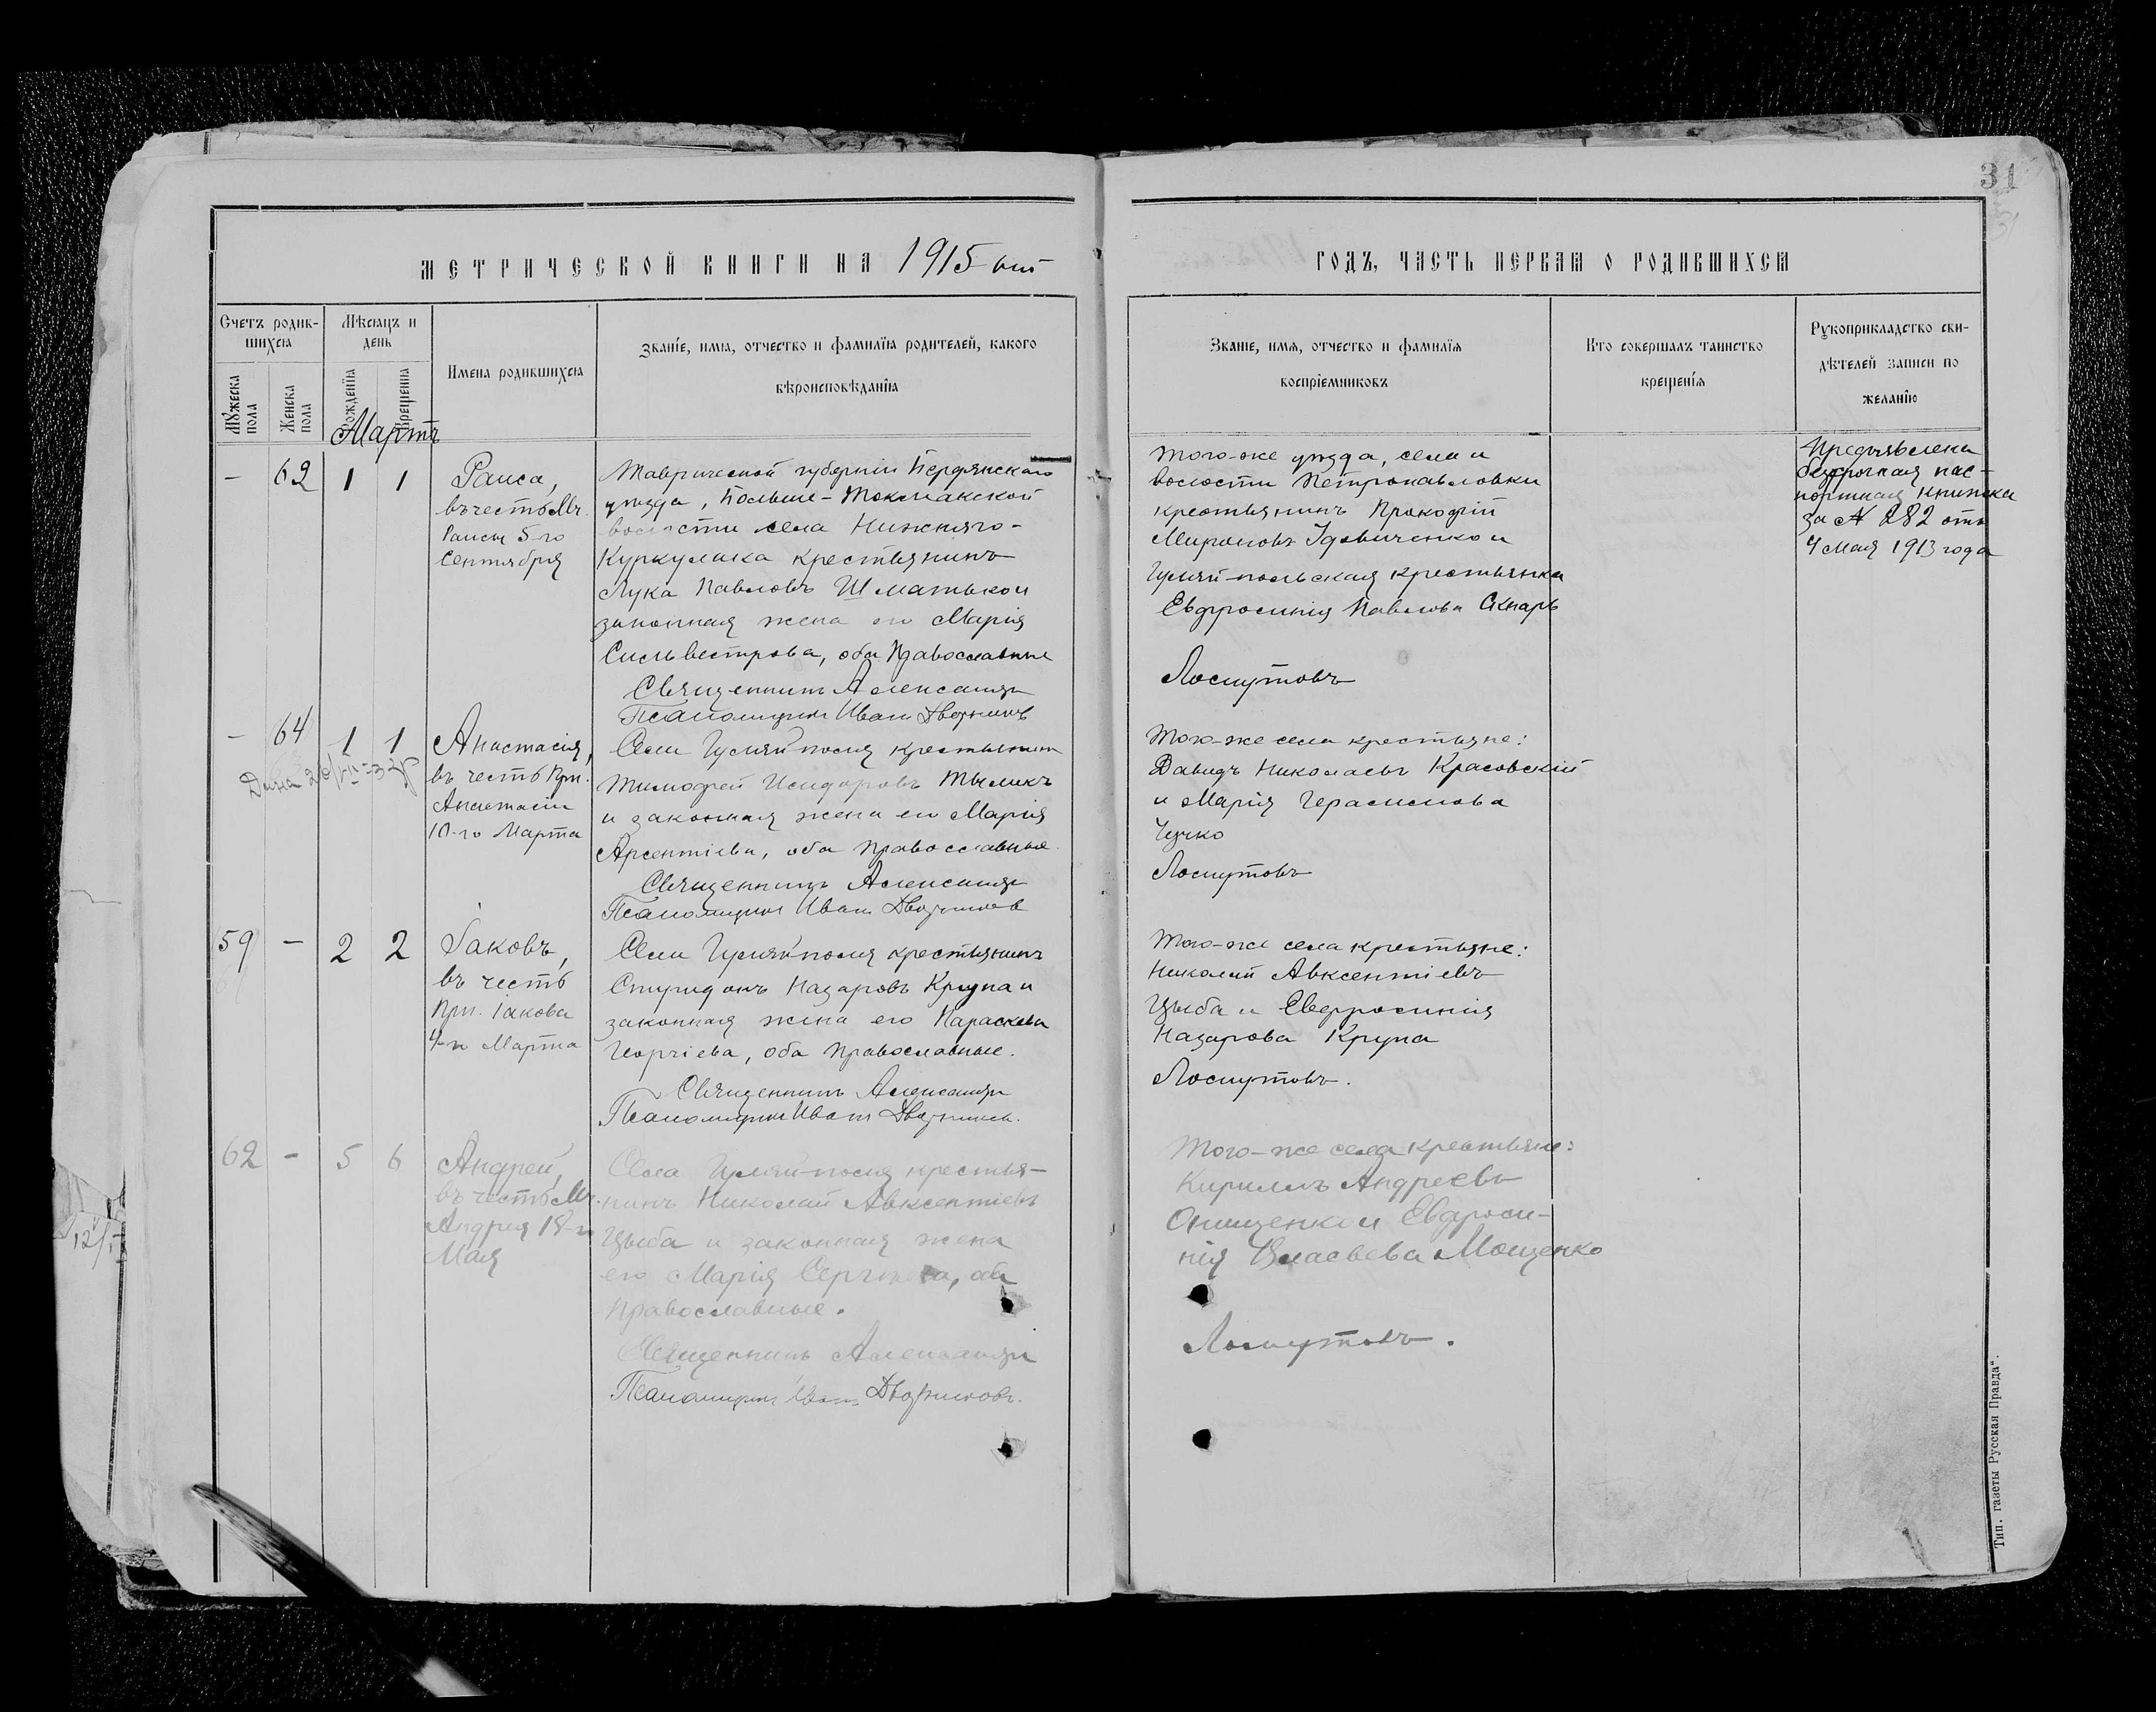 31
МЕТРИЧЕСКОЙ КНИГИ НА 1915 ый
ГОДЪ, ЧАСТЬ ПЕРВАЯ О РОДИВШИХСЯ
Счетъ родив-
шихся
Мѣсяцъ и
день
Мужеска пола
Женска пола
Рожденія
Крещенія
Имена родившихся
Званіе, имя, отчество и фамилія родителей, какого
вѣроисповѣданія
Званіе, имя, отчество и фамилія
воспріемниковъ
Кто совершалъ таинство
крещенія
Рукоприкладство сви-
дѣтелей записи по
желанію
Мартъ
- 62 1 1
Раиса,
въ честь Мч.
Раисы 5-го
Сентября
Таврической губерніи Бердянскаго
уѣзда, Больше-Токмакской
волости села Нижняго-
Куркулака крестьянинъ
Лука Павловъ Шматько и
законная жена его Марія
Сильвестрова, оба Православные
Священникъ Александръ
Псаломщикъ Иванъ Дворниковъ
Того-же уѣзда, села и
волости Петропавловки
крестьянинъ Прокофій
Мироновъ Удовиченко и
Гуляй-польская крестьянка
Евфросинія Павлова Скнарь
Лоскутовъ
Предъявлена
безсрочная пас-
портная книжка
за № 282 отъ
4 Мая 1913 года
- 64 1 1
Анастасія,
въ честь Прп.
Анастасіи
10-го Марта
Села Гуляйполя крестьянинъ
Тимофей Исидоровъ Тыликъ
и законная жена его Марія
Арсентіева, оба православные.
Священникъ Александръ
Псаломщикъ Иванъ Дворниковъ
Того-же села крестьяне:
Давидъ Николаевъ Красовскій
и Марія Герасимова
Чучко
Лоскутовъ
59 - 2 2
Іаковъ,
въ честь
Прп. Іакова
4-го Марта
Села Гуляйполя крестьянинъ
Спиридонъ Назаровъ Крупа и
законная жена его Параскева
Георгіева, оба православные.
Священникъ Александръ
Псаломщикъ Иванъ Дворниковъ.
Того-же села крестьяне:
Николай Авксентіевъ
Цыба и Евфросинія
Назарова Крупа
Лоскутовъ.
62 - 5 6
Андрей,
въ честь Мч.
Андрея 18-го
Мая
Села Гуляй-поля крестья-
нинъ Николай Авксентіевъ
Цыба и законная жена
его Марія Сергѣева, оба
православные.
Священникъ Александръ
Псаломщикъ Иванъ Дворниковъ.
Того-же села крестьяне:
Кириллъ Андреевъ
Онищенко и Евфроси-
нія Власьева Мощенко
Лоскутовъ.
12/
Тип. газеты Русская Правда".